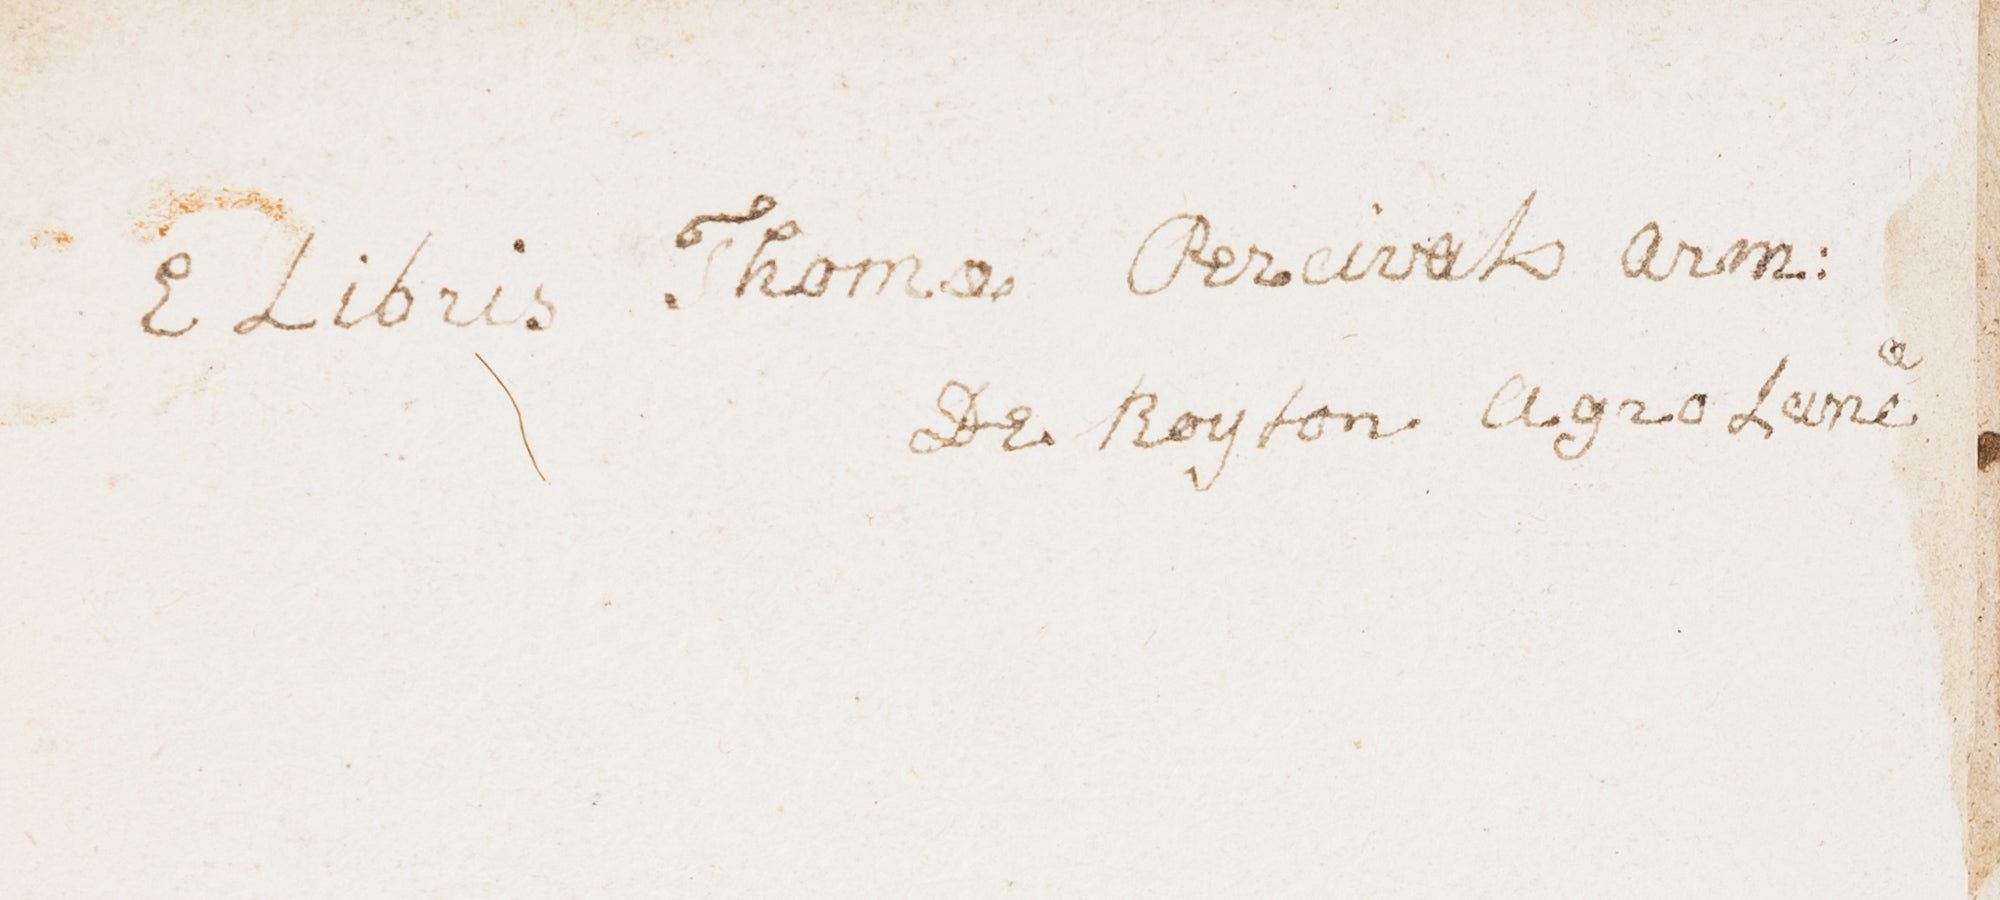 E Libris Thomæ Percivals Arm:
De Royton Agro Lancæ